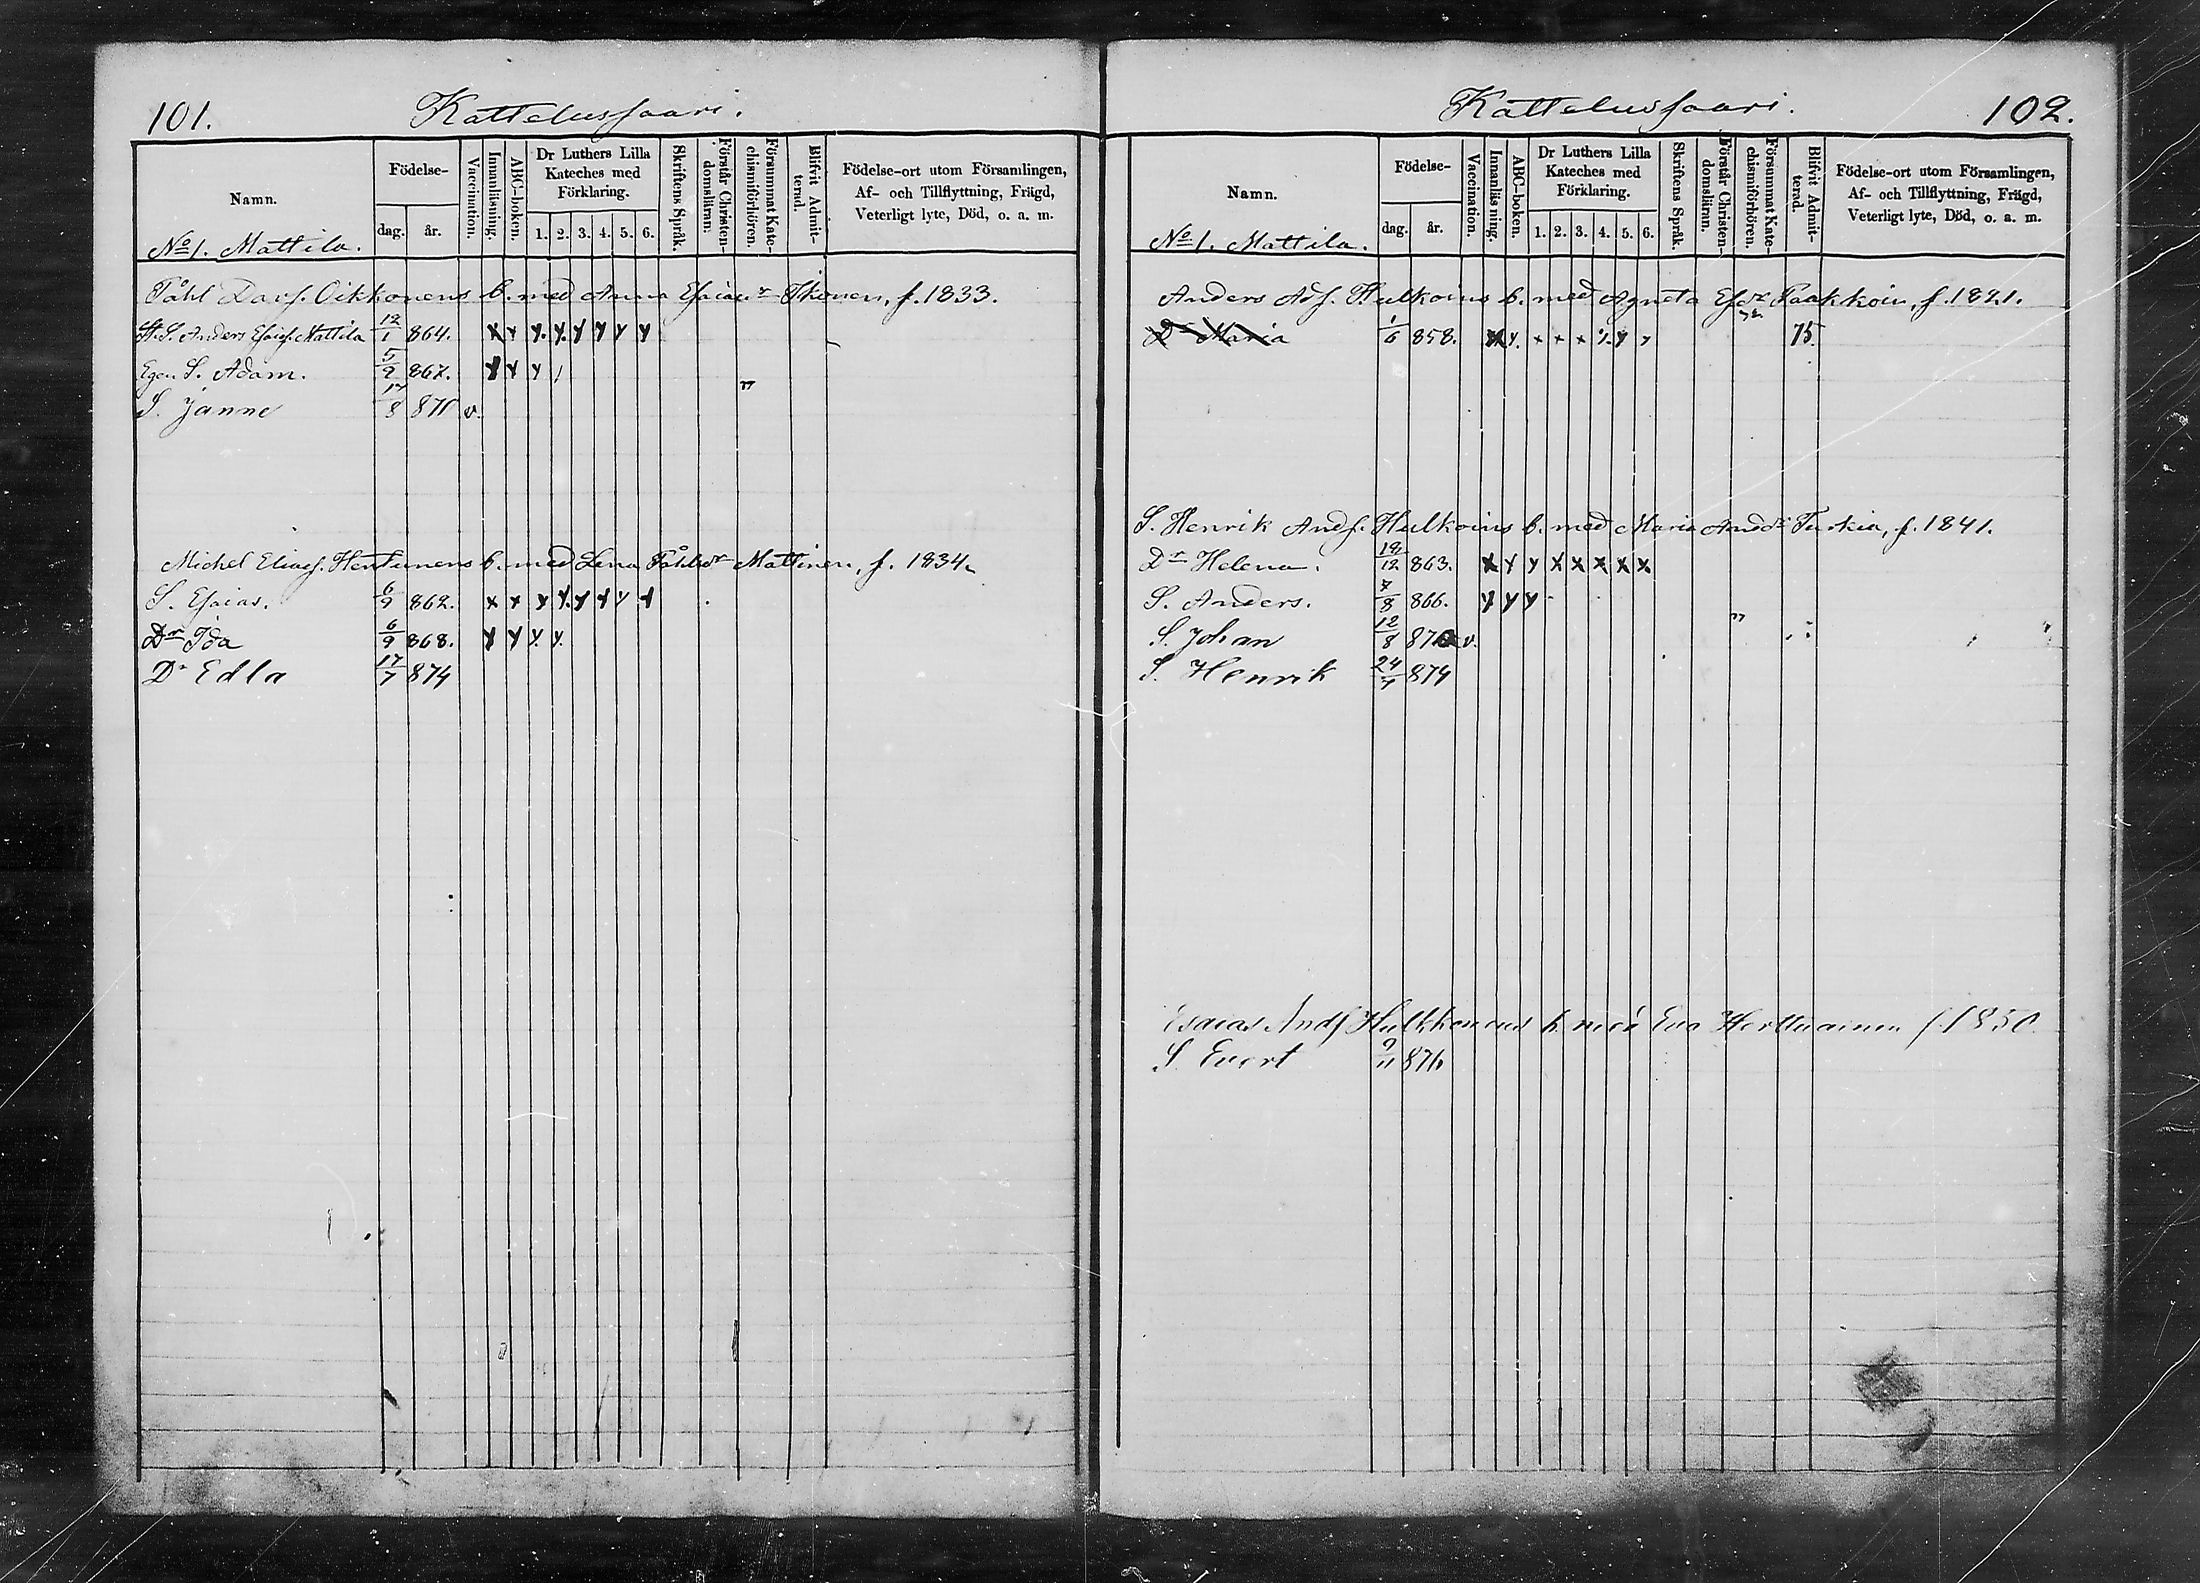 101.
Kattelussaari.
Namn.
Födelse-
dag.
år.
Vaccination.
Innanläsning.
ABC-boken.
Dr Luthers Lilla
Kateches med
Förklaring.
1. 2. 3. 4. 5. 6.
Skriftens Språk.
Förstår Christen-
domsläran.
Försummat Kate-
chismiförhören.
Blifvit Admit-
terad.
Födelse-ort utom Församlingen,
Af- och Tillflyttning, Frägd,
Veterligt lyte, Död, o. a. m.
No 1. Mattila.
Påhl Davs. Oikkonens b. med Anna Esaiasdr Ikonen, f. 1833.
S. Anders Esaias. Mattila 12/1 864. x y y. y. y y y y
Egen S. Adam. 5/2 867. y y y
S. Janne 17/8 871 v.
Michel Eliass. Hentunens b. med Lena Påhlsdr Mattinen, f. 1834.
S. Esaias. 6/9 862. x x y y. y y y y
Dr Ida 6/9 868. y y y. y.
Dr Edla 17/7 874
Kattelussaari.
102.
Namn.
Födelse-
dag.
år.
Vaccination.
Innanläsning.
ABC-boken.
Dr Luthers Lilla
Kateches med
Förklaring.
1. 2. 3. 4. 5. 6.
Skriftens Språk.
Förstår Christen-
domsläran.
Försummat Kate-
chismiförhören.
Blifvit Admit-
terad.
Födelse-ort utom Församlingen,
Af- och Tillflyttning, Frägd,
Veterligt lyte, Död, o. a. m.
No 1. Mattila.
Anders Ads. Hulkoins b. med Agneta Esdr Paakkoin, f. 1821.
Dr Maria 1/6 858. x y. x x x y. y 75.
S. Henrik Ands. Hulkoins b. med Maria Andsdr Turkia, f. 1841.
Dr Helena. 18/12 863. x y y x x x x x
S. Anders. 7/8 866. y y y
S. Johan 12/8 87 v.
S. Henrik 24/7 874
Esaias Ands Hulkkonens b. med Eva Herttuainen f. 1850
S. Evert 9/11 876